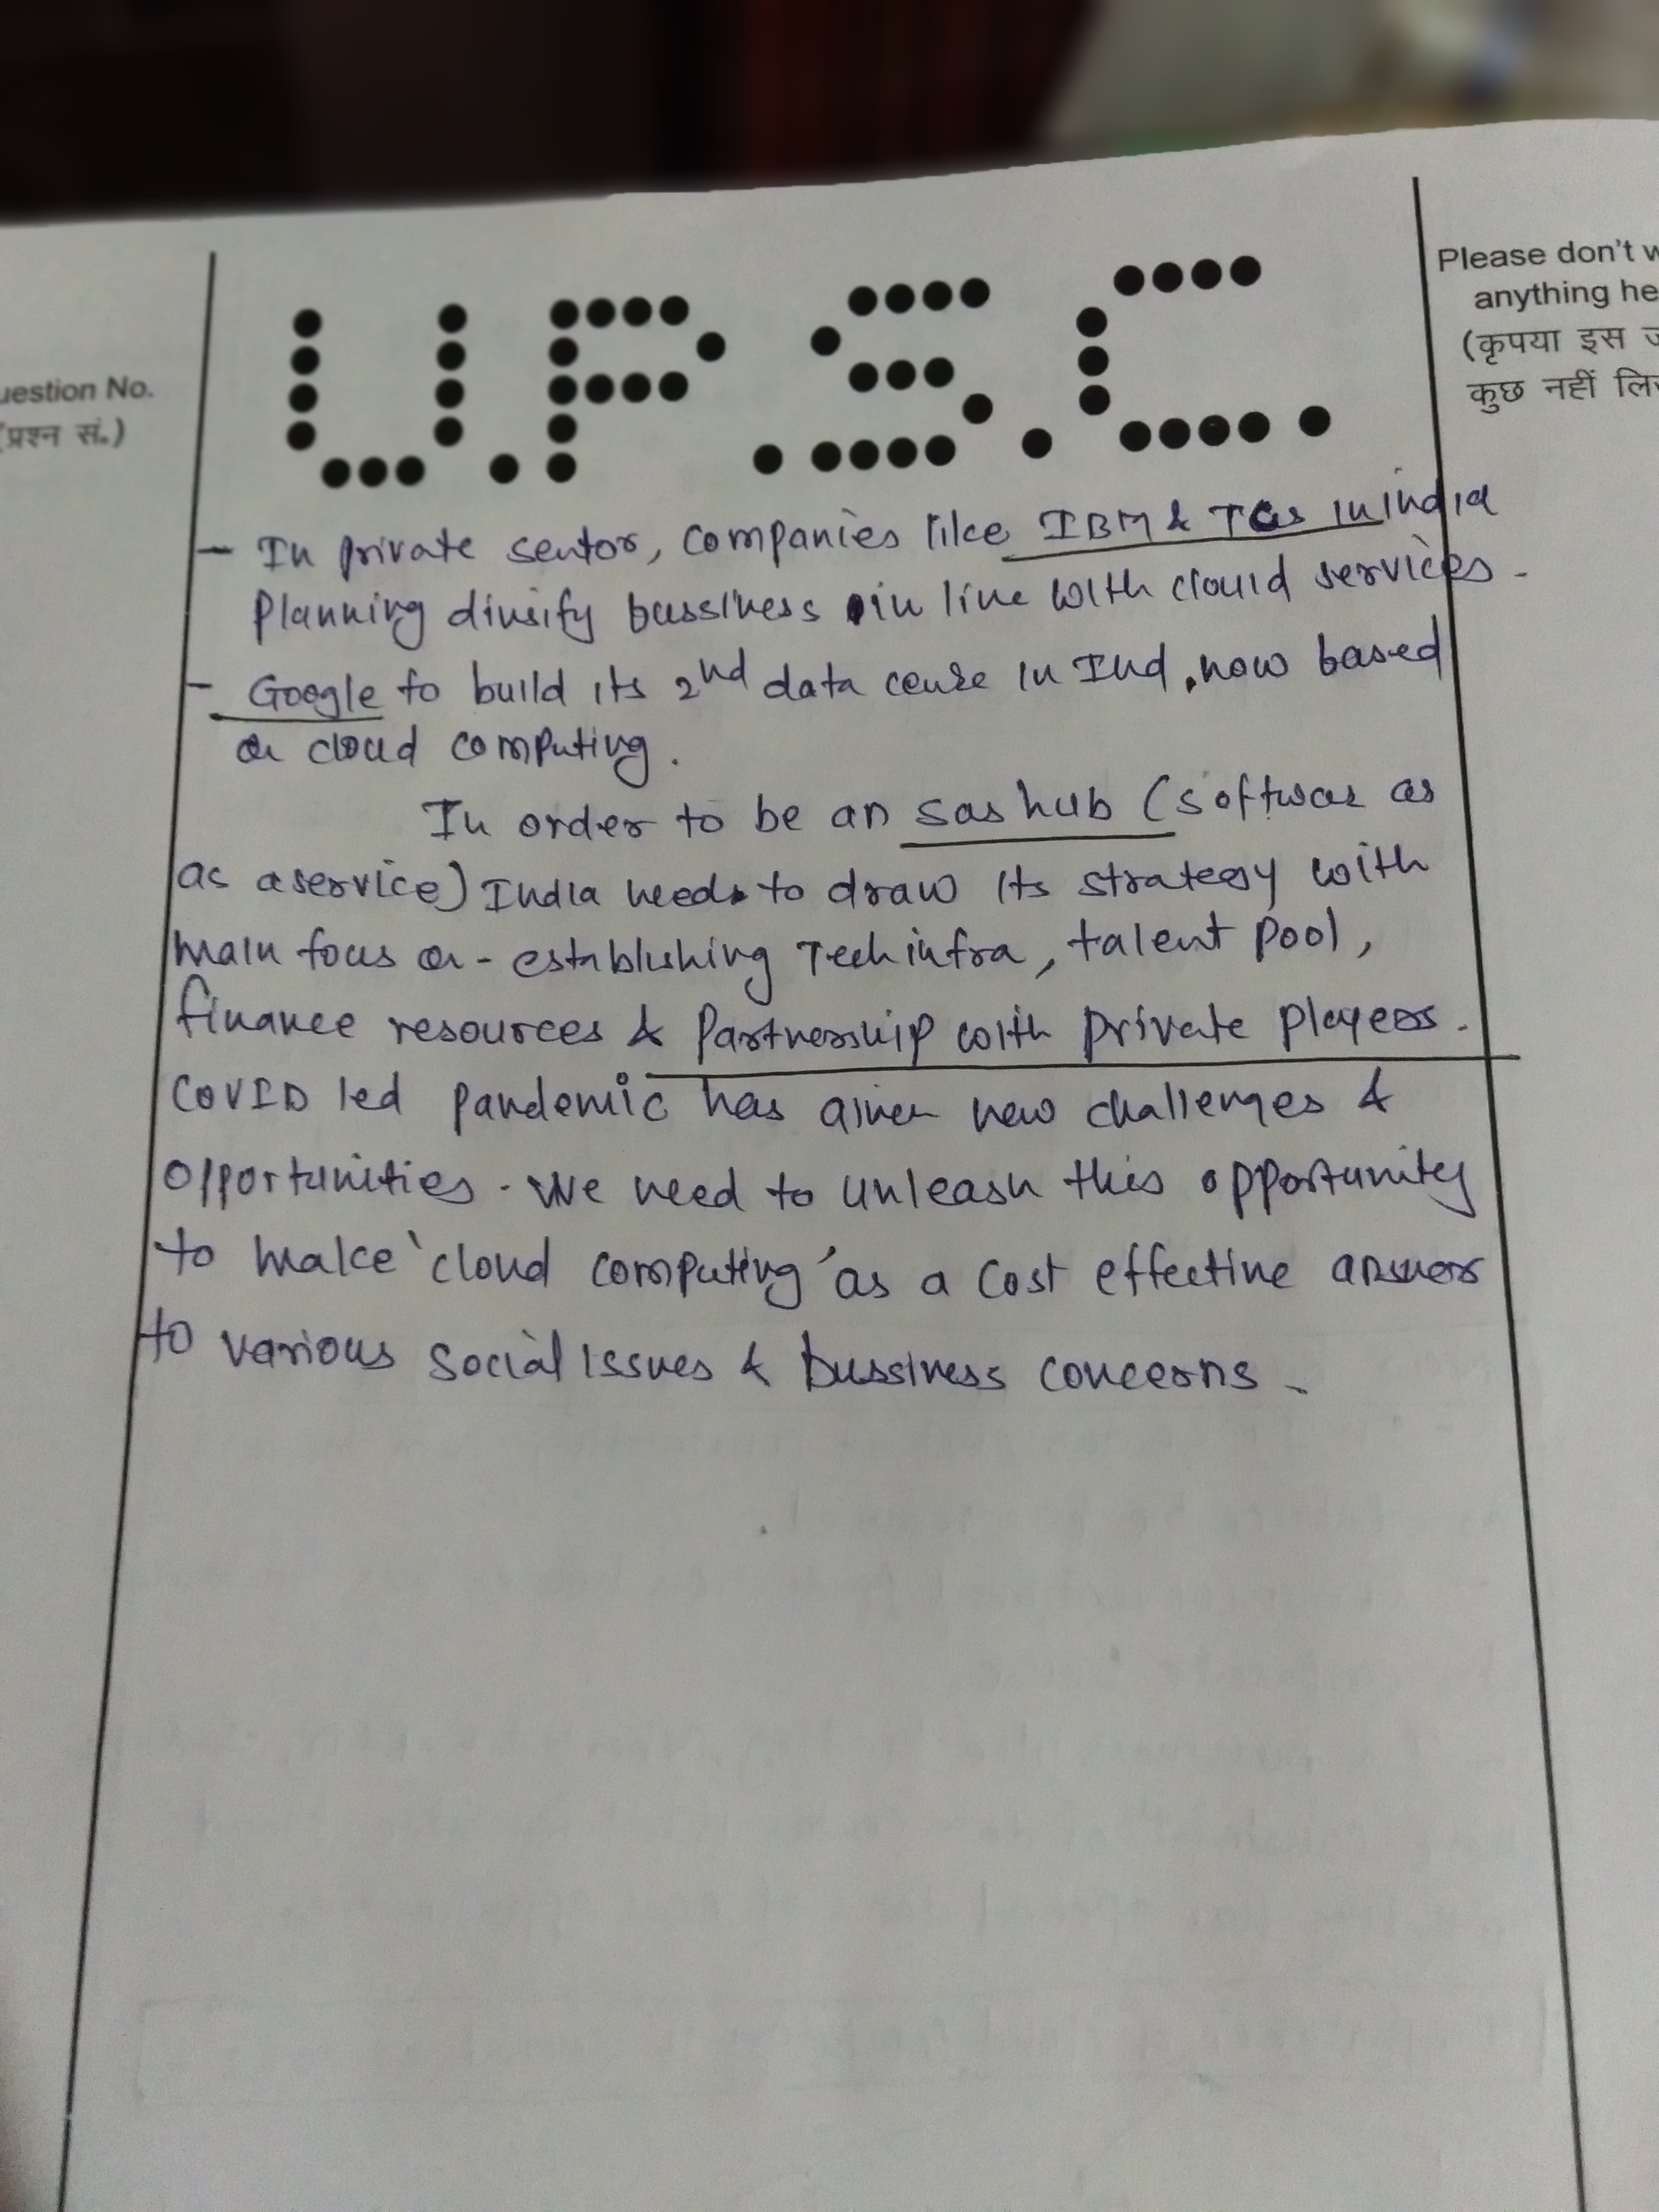 Please don't w
anything he
(कृपया इस ज
कुछ नहीं लिख
uestion No.
(प्रश्न सं.)
U.P.S.C.
- In private sentor, companies like IBM & TCS in India
Planning divsify bussiness in line with clouid services.
- Google to build its 2nd data centre in Ind, now based
on cloud computing.
In order to be an sas hub (softwar as
as a service) India needs to draw its strategy with
main focus on - establishing Tech infra, talent pool,
finance resources & Partnership with private players.
COVID led pandemic has given new challenges &
opportunities. We need to unleash this opportunity
to make 'cloud computing' as a cost effective answer
to various social issues & bussiness concerns.